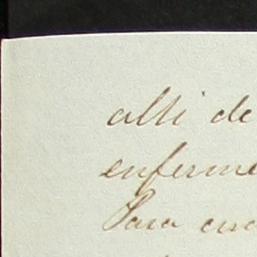 alli de
enferme
Para cua